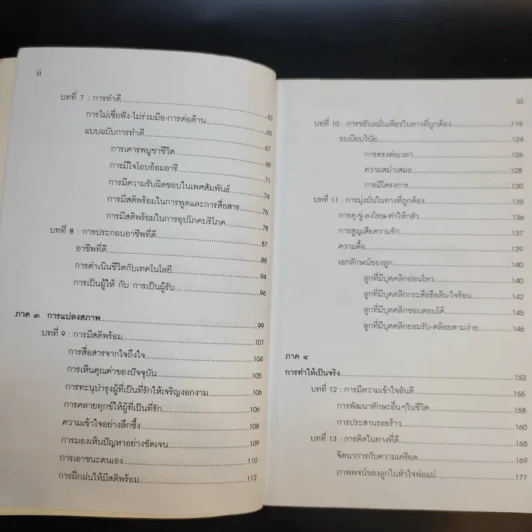 ii
บทที่ 7 : การทำดี
การไม่เชื่อฟัง-ไม่ร่วมมือ-การต่อต้าน 63
แบบฉบับการทำดี 65
การเคารพบูชาชีวิต 67
การมีใจโอบอ้อมอารี 68
การมีความรับผิดชอบในเพศสัมพันธ์ 71
การมีสติพร้อมในการพูดและการสื่อสาร 74
การมีสติพร้อมในการอุปโภคบริโภค 76
78
บทที่ 8 : การประกอบอาชีพที่ดี 87
อาชีพที่ดี 88
การดำเนินชีวิตกับเทคโนโลยี 94
การเป็นผู้ให้ กับ การเป็นผู้รับ 96
ภาค ๓ การแปลงสภาพ 99
บทที่ 9 : การมีสติพร้อม 101
การสื่อสารจากใจถึงใจ 104
การเห็นคุณค่าของปัจจุบัน 105
การทะนุบำรุงผู้ที่เป็นที่รักให้เจริญงอกงาม 106
การคลายทุกข์ให้ผู้ที่เป็นที่รัก 106
ความเข้าใจอย่างลึกซึ้ง 108
การมองเห็นปัญหาอย่างชัดเจน 109
การเอาชนะตนเอง 110
การฝึกฝนให้มีสติพร้อม 112
iii
บทที่ 10 : การขยันหมั่นเพียรในทางที่ถูกต้อง 119
ระเบียบวินัย 124
การตรงต่อเวลา 126
ความสม่ำเสมอ 128
การมีโครงการ 131
บทที่ 11 : การมุ่งมั่นในทางที่ถูกต้อง 135
การดุ-ขู่-ลงโทษ-ทำให้กลัว 136
การสูญเสียความรัก 137
ความดื้อ 139
เอกลักษณ์ของลูก 140
ลูกที่มีบุคคลิกอ่อนไหว 142
ลูกที่มีบุคคลิกกระตือรือล้น-ใจร้อน 142
ลูกที่มีบุคคลิกชอบตอบโต้ 145
ลูกที่มีบุคคลิกยอมรับ-คล้อยตามง่าย 146
ภาค ๔
การทำให้เป็นจริง 153
บทที่ 12 : การมีความเข้าใจอันดี 155
การพัฒนาทักษะอื่นๆในชีวิต 158
การประสานรอยร้าว 160
บทที่ 13 : การคิดในทางที่ดี 165
จิตนาการกับความเครียด 169
ภาพพจน์ของลูกในหัวใจพ่อแม่ 177